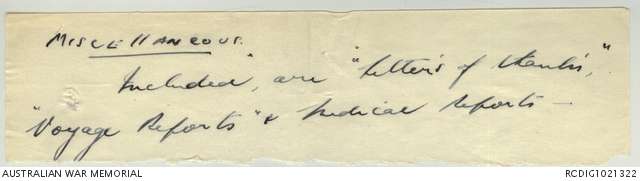 MISCELLANEOUS.
Included, are "letters of thanks,"
"Voyage Reports" & Medical Reports —
AUSTRALIAN WAR MEMORIAL
RCDIG1021322